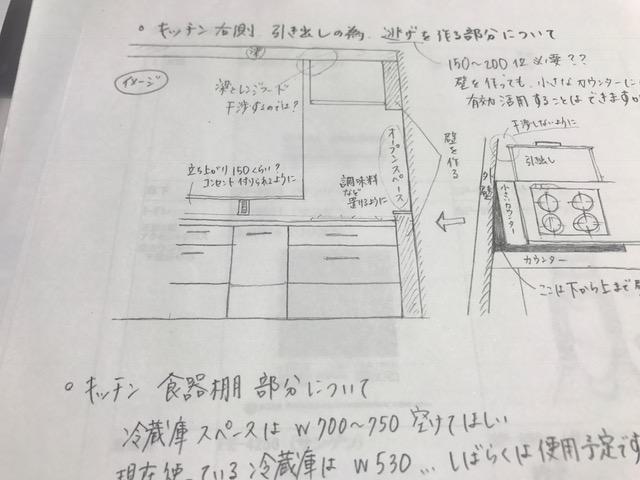 ○ キッチン右側 引き出しの為、逃げを作る部分について
150～200位必要??
壁を作っても、小さなカウンターに
有効活用することはできますか
イメージ
梁
梁とレンジフード
干渉するのでは?
立ち上がり150くらい?
コンセント付けられるように
調味料
など
置けるように
オープンスペース
壁を作る
干渉しないように
引出し
外壁
小さいカウンター
カウンター
ここは下から上まで
○ キッチン 食器棚 部分について
冷蔵庫スペースは W700～750 空けてほしい
現在使っている冷蔵庫は W530… しばらくは使用予定です